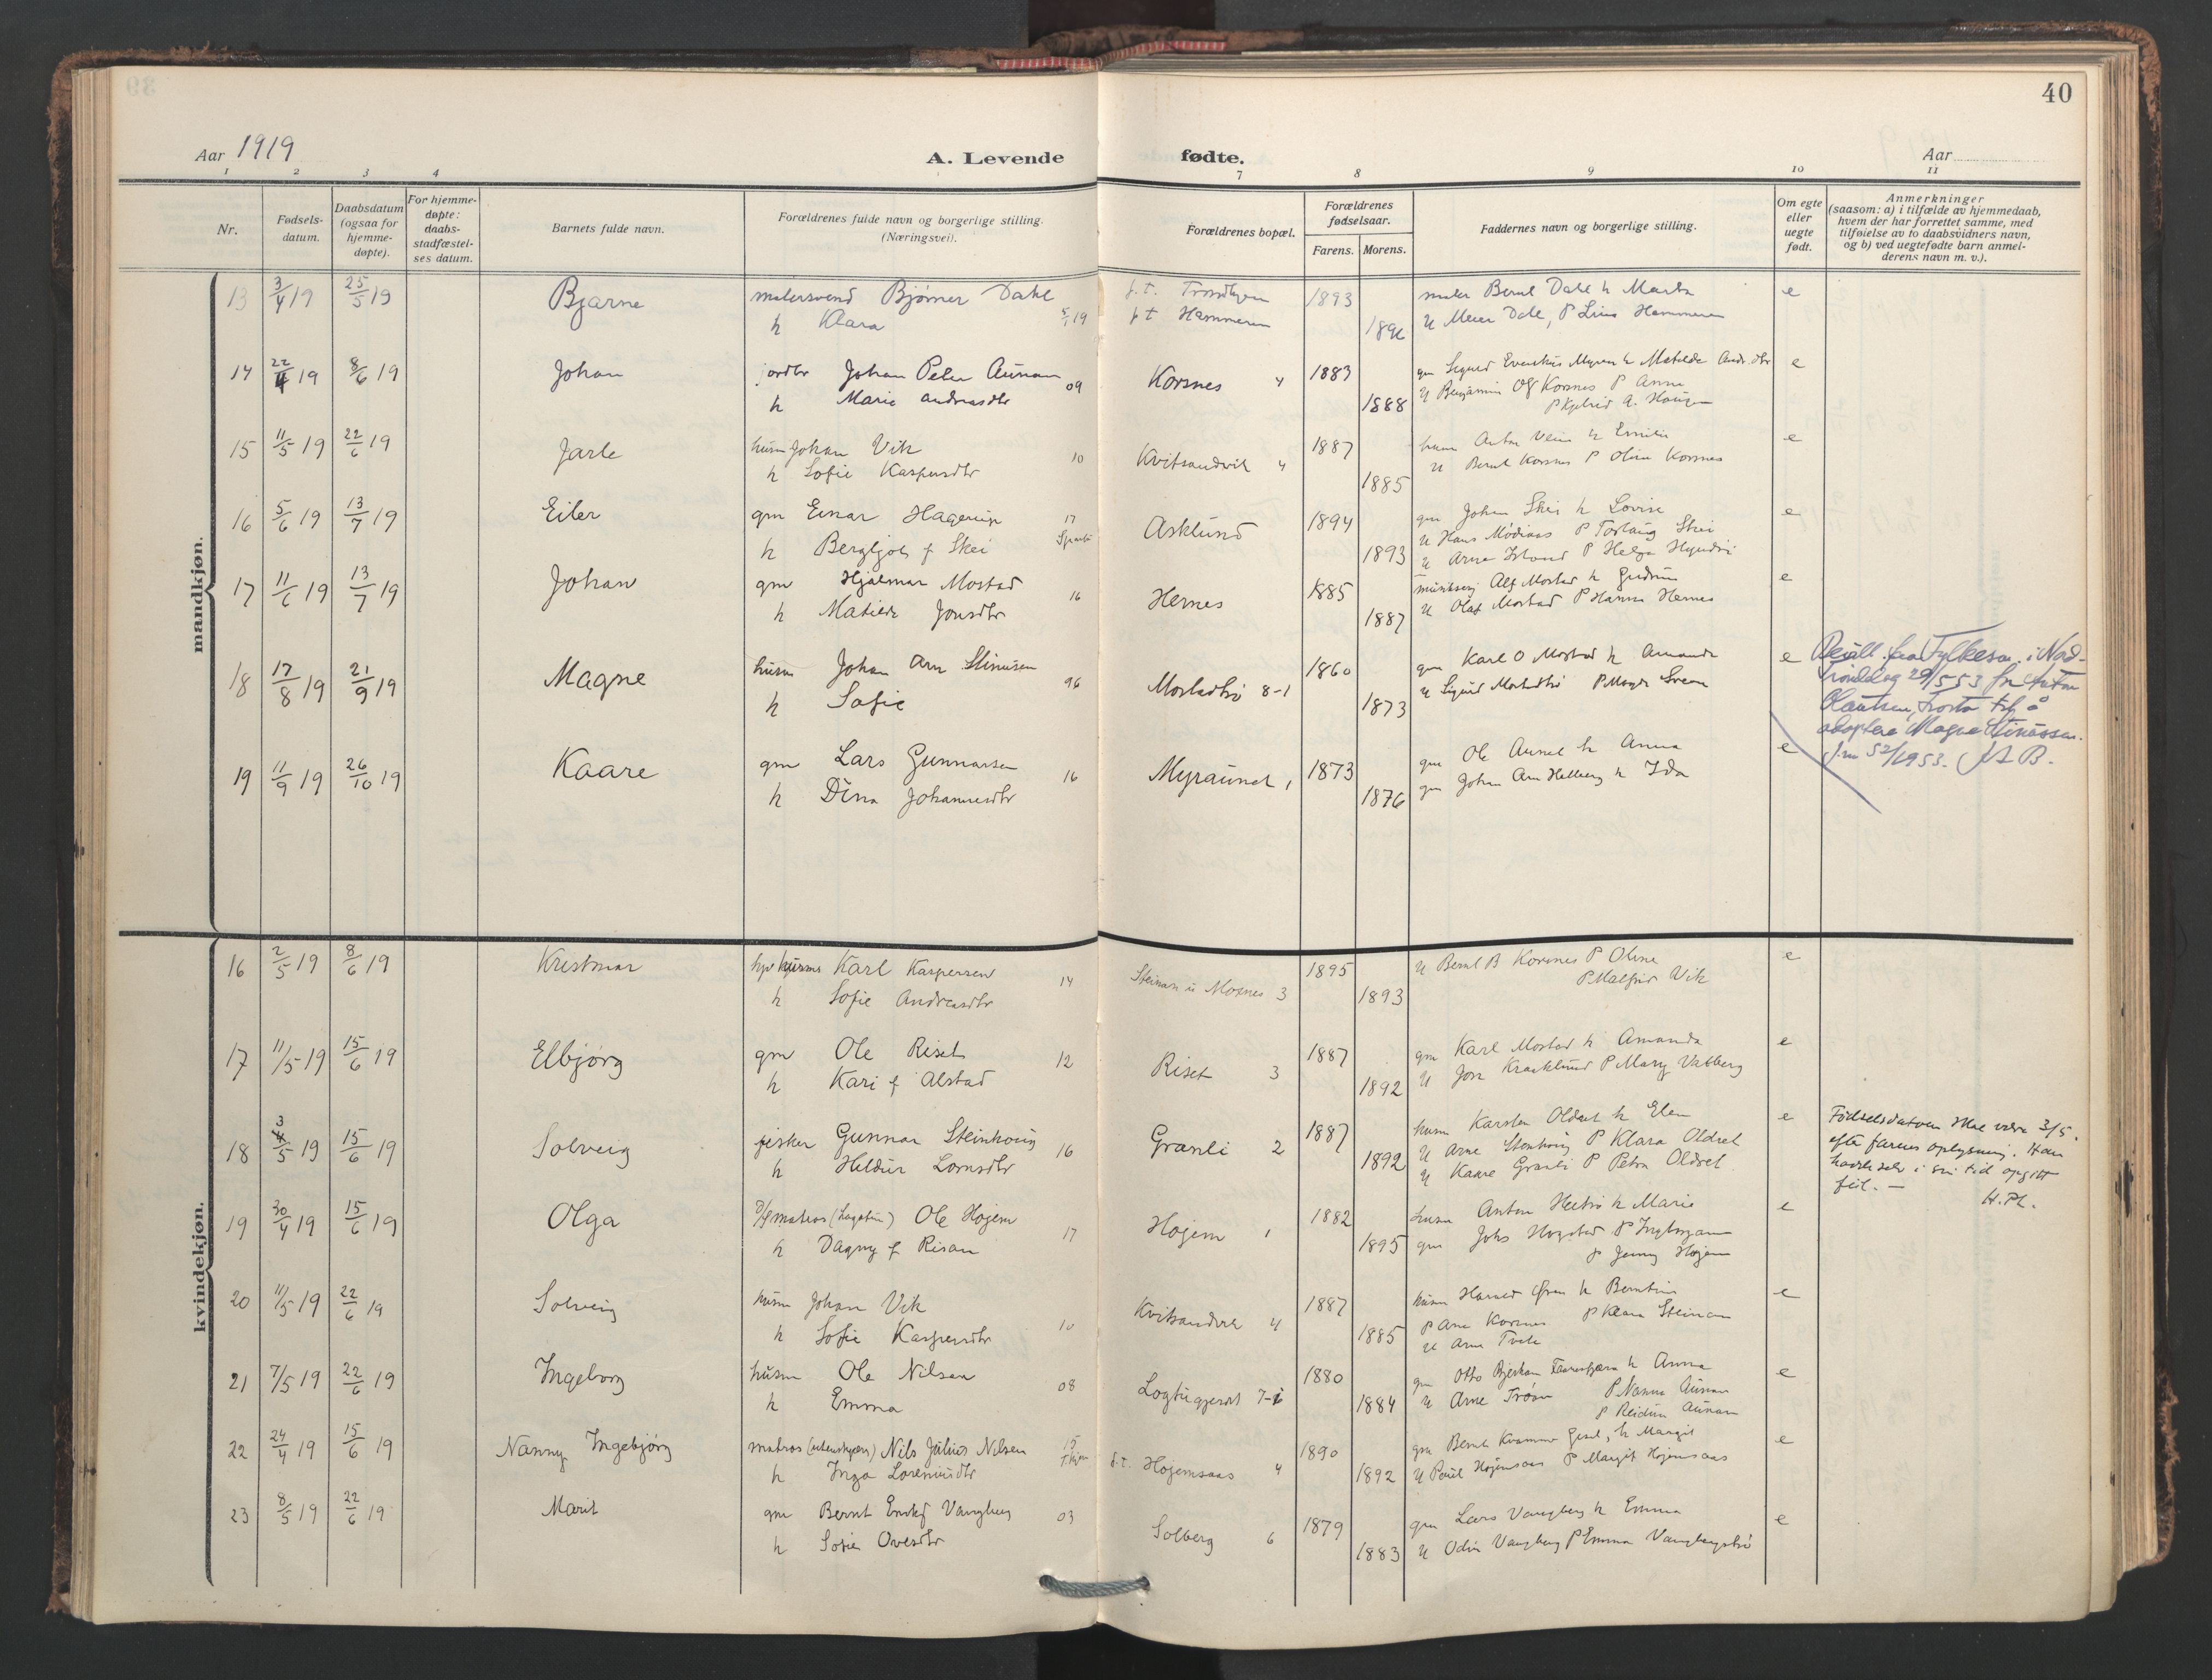 40
Aar 1919
A. Levende fødte.
Aar
1 2 3 4 7 8 9 10 11
Nr.
Fødsels-
datum.
Daabsdatum
(ogsaa for
hjemme-
døpte).
For hjemme-
døpte:
daabs-
stadfæstel-
ses datum.
Barnets fulde navn.
Forældrenes fulde navn og borgerlige stilling.
(Næringsvei).
Forældrenes bopæl.
Forældrenes
fødselsaar.
Farens. Morens.
Faddernes navn og borgerlige stilling.
Om egte
eller
uegte
født.
Anmerkninger
(saasom: a) i tilfælde av hjemmedaab,
hvem der har forrettet samme, med
tilføielse av to daabsvidners navn,
og b) ved uegtefødte barn anmel-
derens navn m. v.).
mandkjøn.
13 3/4 19 25/5 19 Bjarne malersvend Bjørner Dahl f.t. 1893 maler Bernt Dahl h Marta e
h Klara 5/1 19 f t Hammeren U Meier Dale, P Lina Hammeren
14 22/4 19 8/6 19 Johan jordbr Johan Peter Aunan 09 Korsnes 4 1883 gm Sigurd Myren h Matilde e
h Marie Andreasdtr 1888 U Benjamin Korsnes P Anna
P A. Haugen
15 11/5 19 22/6 19 Jarle husm Johan Vik 10 Kvitsandvik 4 1887 husm Anton h Emilie e
h Sofie Kaspersdtr 1885 U Bernt Korsnes P Oline Korsnes
16 5/6 19 13/7 19 Eiler gm Einar Hagerup 17 Asklund 1894 gm Johan Skei h Lovise e
h Bergljot f Skei Sparbu 1893 U Hans Mødinas P Torlaug Skei
U Arne P Helga
17 11/6 19 13/7 19 Johan gm Hjalmar Mostad 16 Hernes 1885 Alf Mostad h Gudrun e
h Matilde Jonsdtr 1887 U Olaf Mostad P Hanna Hernes
18 17/8 19 21/9 19 Magne husm Johan Arn Stinusen 96 Mostadtrø 8-1 1860 gm Karl O Mostad h Amanda e
h Sofie 1873 U Sigurd Mostadtrø P Magda Sveen
fra Fylkesm. i Nord-
Trøndelag 29/5 53 for Anton
Olautsen, Frosta til å
adoptere Magne Stinussen.
J.nr 52/1953.
19 11/9 19 26/10 19 Kaare gm Lars Gunnarsen 16 Myraunet 1 1873 gm Ole Aunet h Anna e
h Dina Johannesdtr 1876 gm Johan Arn Helberg h Ida
kvindekjøn.
16 2/5 19 8/6 19 Kristmar husm Karl Kaspersen 14 Steinan u Moxnes 3 1895 U Bernt B Korsnes P Oline e
h Sofie Andreasdtr 1893 P Malfrid Vik
17 11/5 19 15/6 19 Elbjørg gm Ole Riset 12 Riset 3 1887 gm Karl Mostad h Amanda e
h Kari f Alstad 1892 U Jon P Mary Vatberg
18 3/5 19 15/6 19 Solveig fisker Gunnar Steinhoug 16 Granli 2 1887 husm Karsten Oldret h Elen e
h Hildur Lornsdtr 1892 U Arne Steinhoug P Klara Oldret
U Kaare Granli P Petra Oldret
Fødselsdatoen skal være 3/5.
efter farens oplysning. Han
hadde selv i sin tid opgitt
feil. — H. Pl.
19 30/4 19 15/6 19 Olga matros Ole Højem 17 Højem 1 1882 husm Anton h Marie e
h Dagny f Risan 1895 gm Johs Hogstad P Ingeborganna
P Jenny Højem
20 11/5 19 22/6 19 Solveig husm Johan Vik 10 Kvitsandvik 4 1887 husm Harald Øren h Berntine e
h Sofie Kaspersdtr 1885 P Ane Korsnes P Klara Steinan
U Arne
21 7/5 19 22/6 19 Ingeborg husm Ole Nilsen 08 Logtugjerdt 7-1 1880 gm Otto Bjerkan h Anna e
h Emma 1884 U Arne Trøan P Nanna Aunan
P Reidun Aunan
22 24/4 19 15/6 19 Nanny Ingebjørg matros (utenskjærs) Nils Julius Nilsen 15 f.t. Højemsaas 4 1890 gm Bernt h Margit e
h Inga Lorensdtr 1892 U Paul Højemsaas P Margit Højemsaas
23 8/5 19 22/6 19 Marit gm Bernt Vangberg 03 Solberg 6 1879 gm Lars Vangberg h Emma e
h Sofie Ovesdtr 1883 U Odin Vangberg P Emma Vangbergstrø